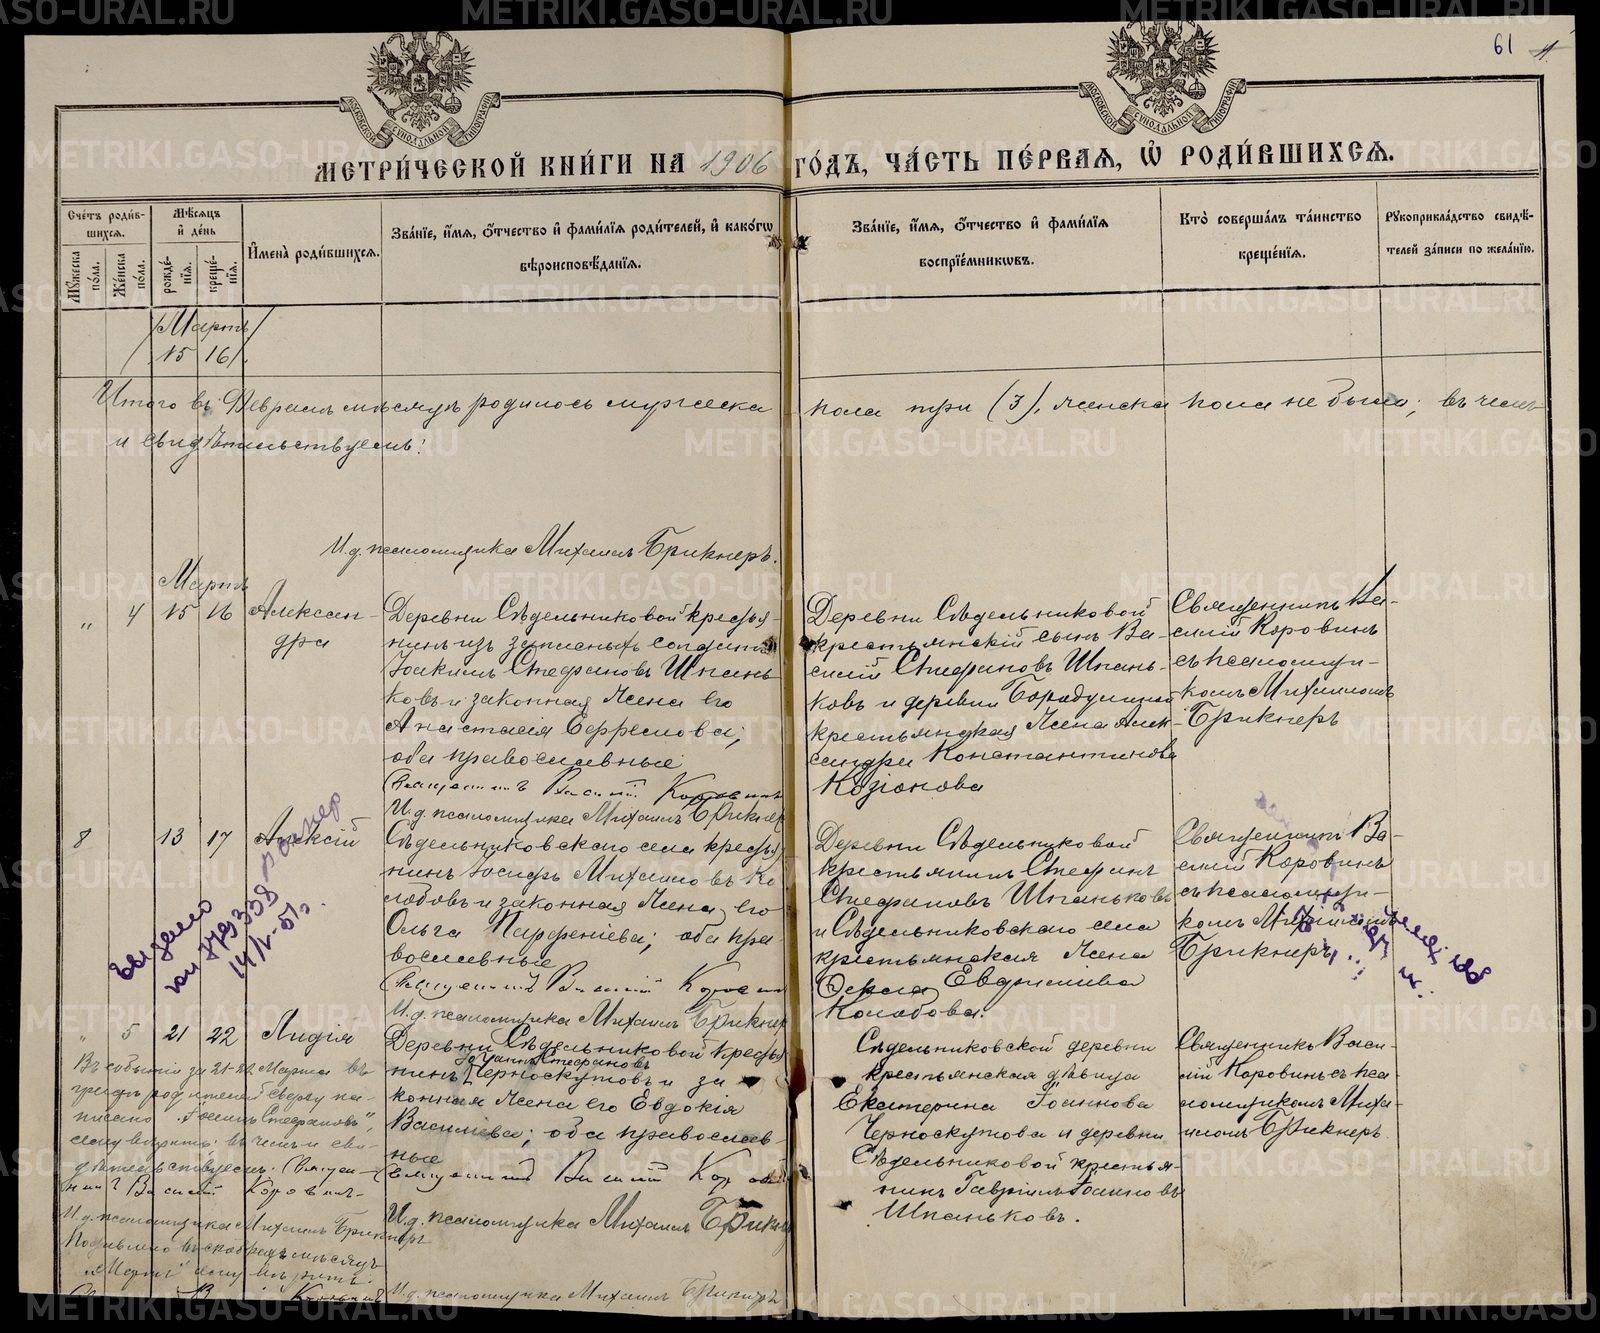 61
МОСКОВСКОЙ СѴНОДАЛЬНОЙ ТИПОГРАФІИ
МОСКОВСКОЙ СѴНОДАЛЬНОЙ ТИПОГРАФІИ
МЕТРИ́ЧЕСКОЙ КНИ́ГИ НА 1906 ГО́ДЪ, ЧА́СТЬ ПЕ́РВАѦ, Ѡ҆ РОДИ́ВШИХСѦ.
Сче́тъ роди́в-
шихсѧ.
Мꙋ́жеска по́ла.
Же́нска по́ла.
Мѣ́сѧцъ и҆ де́нь
рожде́-нїѧ.
креще́-нїѧ.
И҆мена̀ роди́вшихсѧ.
Зва́нїе, и҆́мѧ, ѻ҆́тчество и҆ фами́лїѧ роди́телей, и҆ како́гѡ
вѣроисповѣ́данїѧ.
Зва́нїе, и҆́мѧ, ѻ҆́тчество и҆ фами́лїѧ
воспрїе́мникѡвъ.
Кто̀ соверша́лъ та́инство
креще́нїѧ.
Рꙋкоприкла́дство свидѣ́-
телей за́писи по жела́нїю.
/Мартъ/
/15 16/.
Итого въ Февралѣ мѣсяцѣ родилось мужеска пола три (3), женска пола не было; въ чемъ
и свидѣтельствуемъ:
И.д. псаломщика Михаилъ Брикнеръ.
Мартъ
" 4 15 16 Алексан-
дра
Деревни Сѣдельниковой крестья-
нинъ изъ запасныхъ солдатъ
Іоакимъ Стефановъ Шпань-
ковъ и законная жена его
Анастасія Ефремова;
оба православные
Священникъ Василій Коровинъ
И.д. псаломщика Михаилъ Брикнеръ
Деревни Сѣдельниковой
крестьянскій сынъ Ва-
силій Стефановъ Шпань-
ковъ и деревни Бородулиной
крестьянская жена Алек-
сандра Константинова
Козіонова
Священникъ Ва-
силій Коровинъ
съ псаломщи-
комъ Михаиломъ
Брикнеръ
8 13 17 Алексій
Сѣдельниковскаго села крестья
нинъ Іосифъ Михаиловъ Ко
лобовъ и законная жена его
Ольга Парфеніева; оба пра-
вославные
Священникъ Василій Коровинъ
И.д. псаломщика Михаилъ Брикнер
Деревни Сѣдельниковой
крестьянинъ Стефанъ
Стефановъ Шпаньковъ
и Сѣдельниковскаго села
крестьянская жена
Фекла Евдокимова
Колобова.
Священникъ Ва-
силій Коровинъ
съ псаломщи-
комъ Михаиломъ
Брикнеръ
14/V-51г.
" 5 21 22 Лидія
Деревни Сѣдельниковой крестья
Іоаннъ Стефановъ
нинъ Черноскутовъ и за
конная жена его Евдокія
Василіева; оба православ-
ные
Священникъ Василій Коровинъ
И.д. псаломщика Михаилъ Брикнер
Сѣдельниковской деревни
крестьянская дѣвица
Екатерина Іоаннова
Черноскутова и деревни
Сѣдельниковой крестья-
нинъ Гавріилъ Іоанновъ
Шпаньковъ.
Священникъ Васи-
лій Коровинъ съ пса
ломщикомъ Миха-
иломъ Брикнеръ
Въ событіи за 21-22 Марта въ
графѣ родителей сверху на-
писано "Іоаннъ Стефановъ",
чему вѣрить: въ чемъ и сви-
дѣтельствуемъ: Священ-
никъ Василій Коровинъ
И.д. псаломщика Михаилъ Брикнеръ
И.д. псаломщика Михаилъ Брикнеръ
METRIKI.GASO-URAL.RU